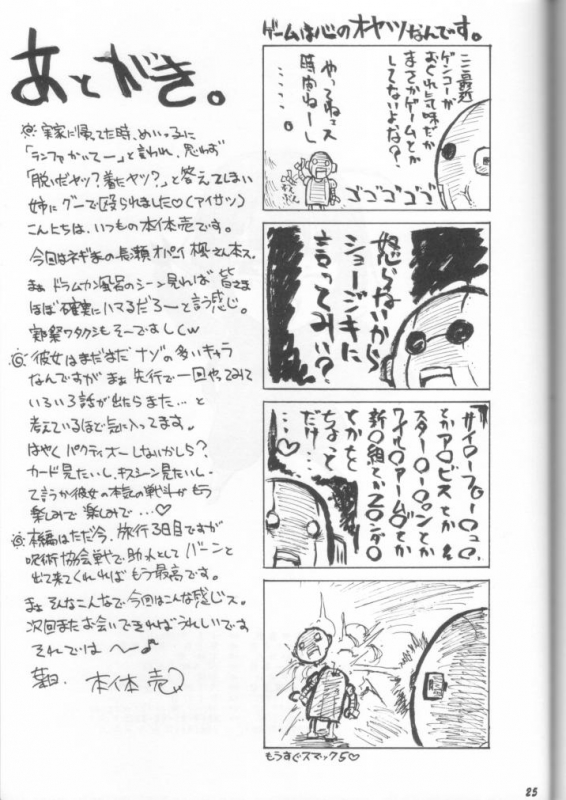 あとがき。
◎実家に帰ってた時、めいっ子に
「ランファかいてー」と言われ、思わず
「脱いだヤツ?着たヤツ?」と答えてしまい
姉にグーで殴られました♡(アイサツ)
こんにちは、いつもの本体売です。
今回はネギまの長瀬オパイ楓さん本ス。
まぁドラムカン風呂のシーン見れば皆さま
ほぼ確実にハマるだろーと言う感じ。
実際ワタクシもそーでましたw
◎彼女はまだまだナゾの多いキャラ
なんですがまぁ先行で一回やってみて
いろいろ話が出たらまた…と
考えているほど気に入ってます。
はやくパクティオーしないかしら?
カード見たいし、キスシーン見たいし、
て言うか彼女の本気の戦斗がもう
楽しみで楽しみで…♡
◎本編はただ今、旅行3日目ですが
呪術協会戦で助っ人としてバーンと
出て来てくれればもう最高です。
まぁそんなこんなで今回はこんな感じス。
次回またお会いできればうれしいです
それでは〜♪
本体売
ゲームは心のオヤツなんです。
ここ最近
ゲンコーが
おくれ気味だが
まさかゲームとか
してないよな?
やってねェス
時間ねーし
……。
ゴゴゴゴゴ
怒らないから
ショージキに
言ってみい?
サイ〇ーフォー〇ュ〇、
とかア〇ビスとか
スター〇ー〇ンとか
ワイル〇アームとか
新〇組とかZ〇ンデ〇
とかちと
ちょって
だけ…
…♡
もうすぐスマック5♡
25